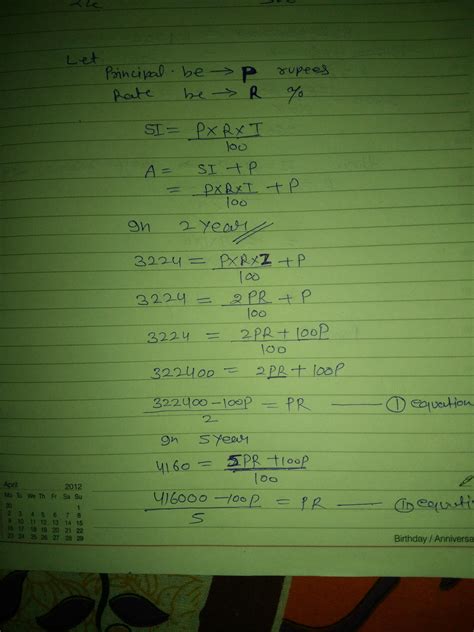 Let
Principal be → P rupees
Rate be → R %
SI = P×R×T
100
A = SI + P
= P×R×T + P
100
In 2 Year
3224 = P×R×2 + P
100
3224 = 2PR + P
100
3224 = 2PR + 100P
100
322400 = 2PR + 100P
322400 - 100P = PR — ① equation
2
In 5 Year
4160 = 5PR + 100P
100
416000 - 100P = PR — ⑪ equati
5
April 2012
Mo Tu We Th Fr Sa Su
30 1
2 3 4 5 6 7 8
9 10 11 12 13 14 15
16 17 18 19 20 21 22
23 24 25 26 27 28 29
Birthday / Anniversa